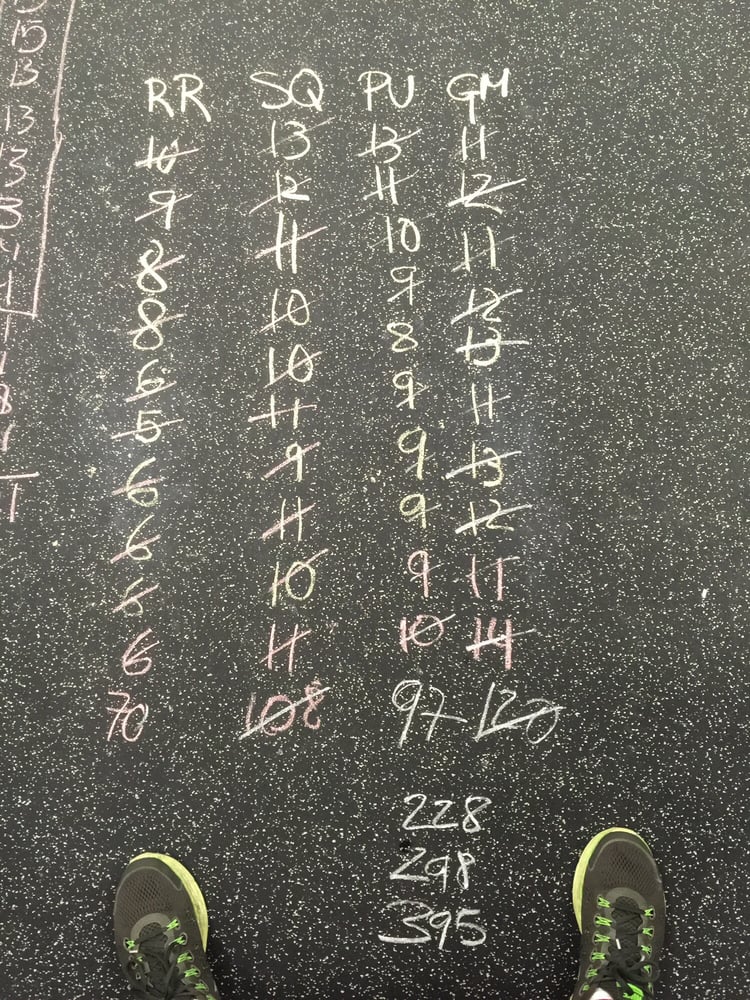 15
13
13
3
RR SQ PU GM
10 13 13 11
9 12 11 12
8 11 10 11
8 10 9 12
6 10 8 13
5 11 9 11
6 9 9 13
6 11 9 12
6 10 9 11
6 11 10 14
70 108 97 120
228
298
395